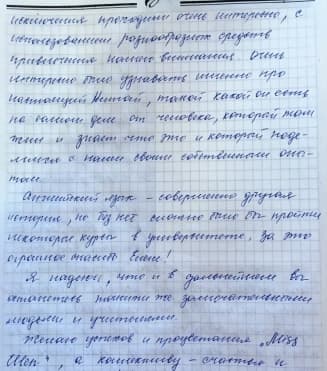 исключения проходили очень интересно, с
использованием разнообразных средств
привлечения нашего внимания. Очень
интересно было узнавать именно про
настоящий Китай, такой какой он есть
на самом деле от человека, который там
жил и знает что это и который поде-
лился с нами своим собственным опы-
том.
Английский язык - совершенно другая
история, но без него сложно было бы пройти
некоторые курсы в университете. За это
огромное спасибо Вам!
Я надеюсь, что и в дальнейшем вы
останетесь такими же замечательными
людьми и учителями.
Желаю успехов и процветания "Miss
", а коллективу - счастья и